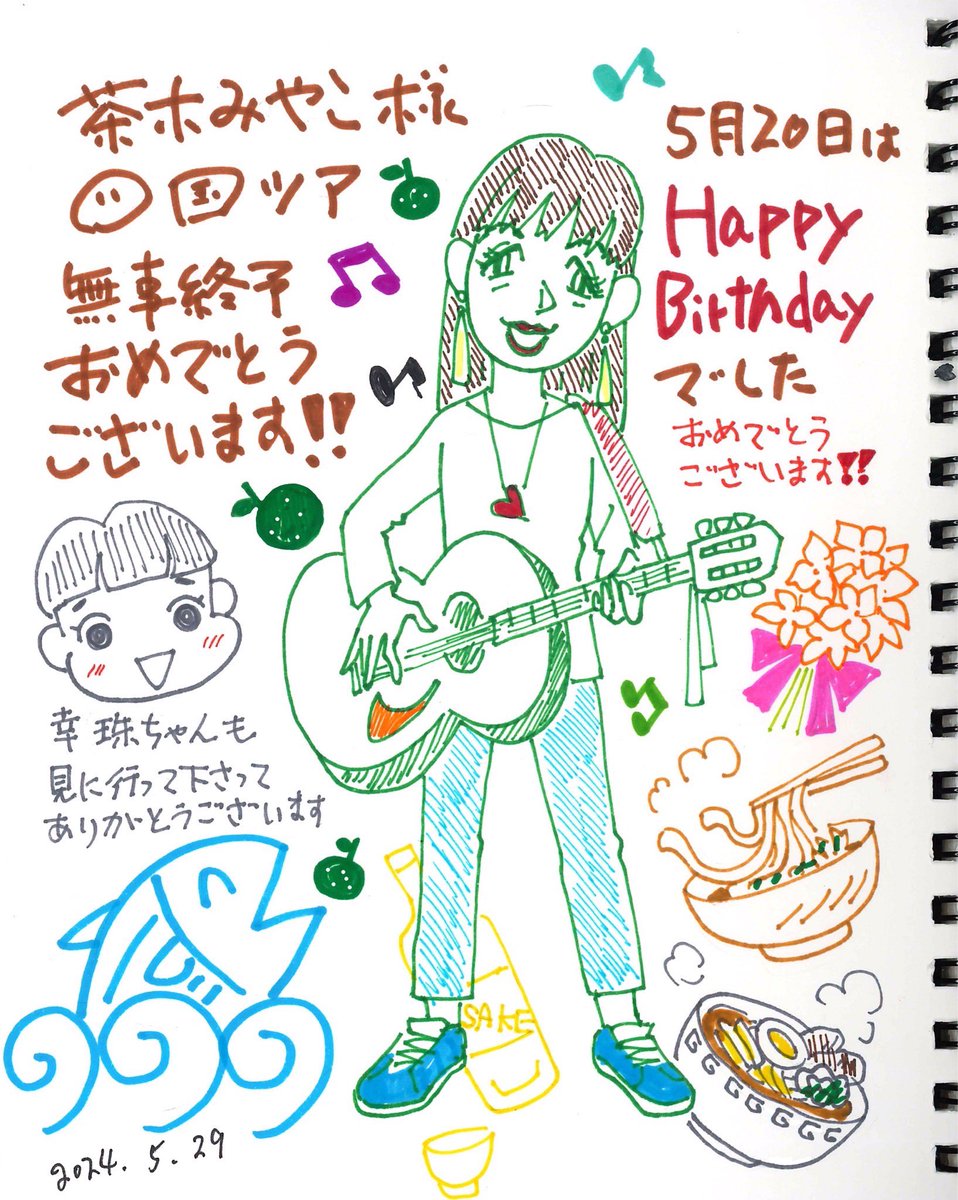 茶木みやこ様
四国ツア
無事終予
おめでとう
ございます!!
5月20日は
Happy
Birthday
でした
おめでとう
ございます!!
幸珠ちゃんも
見に行って下さって
ありがとうございます
SAKE
2024.5.29